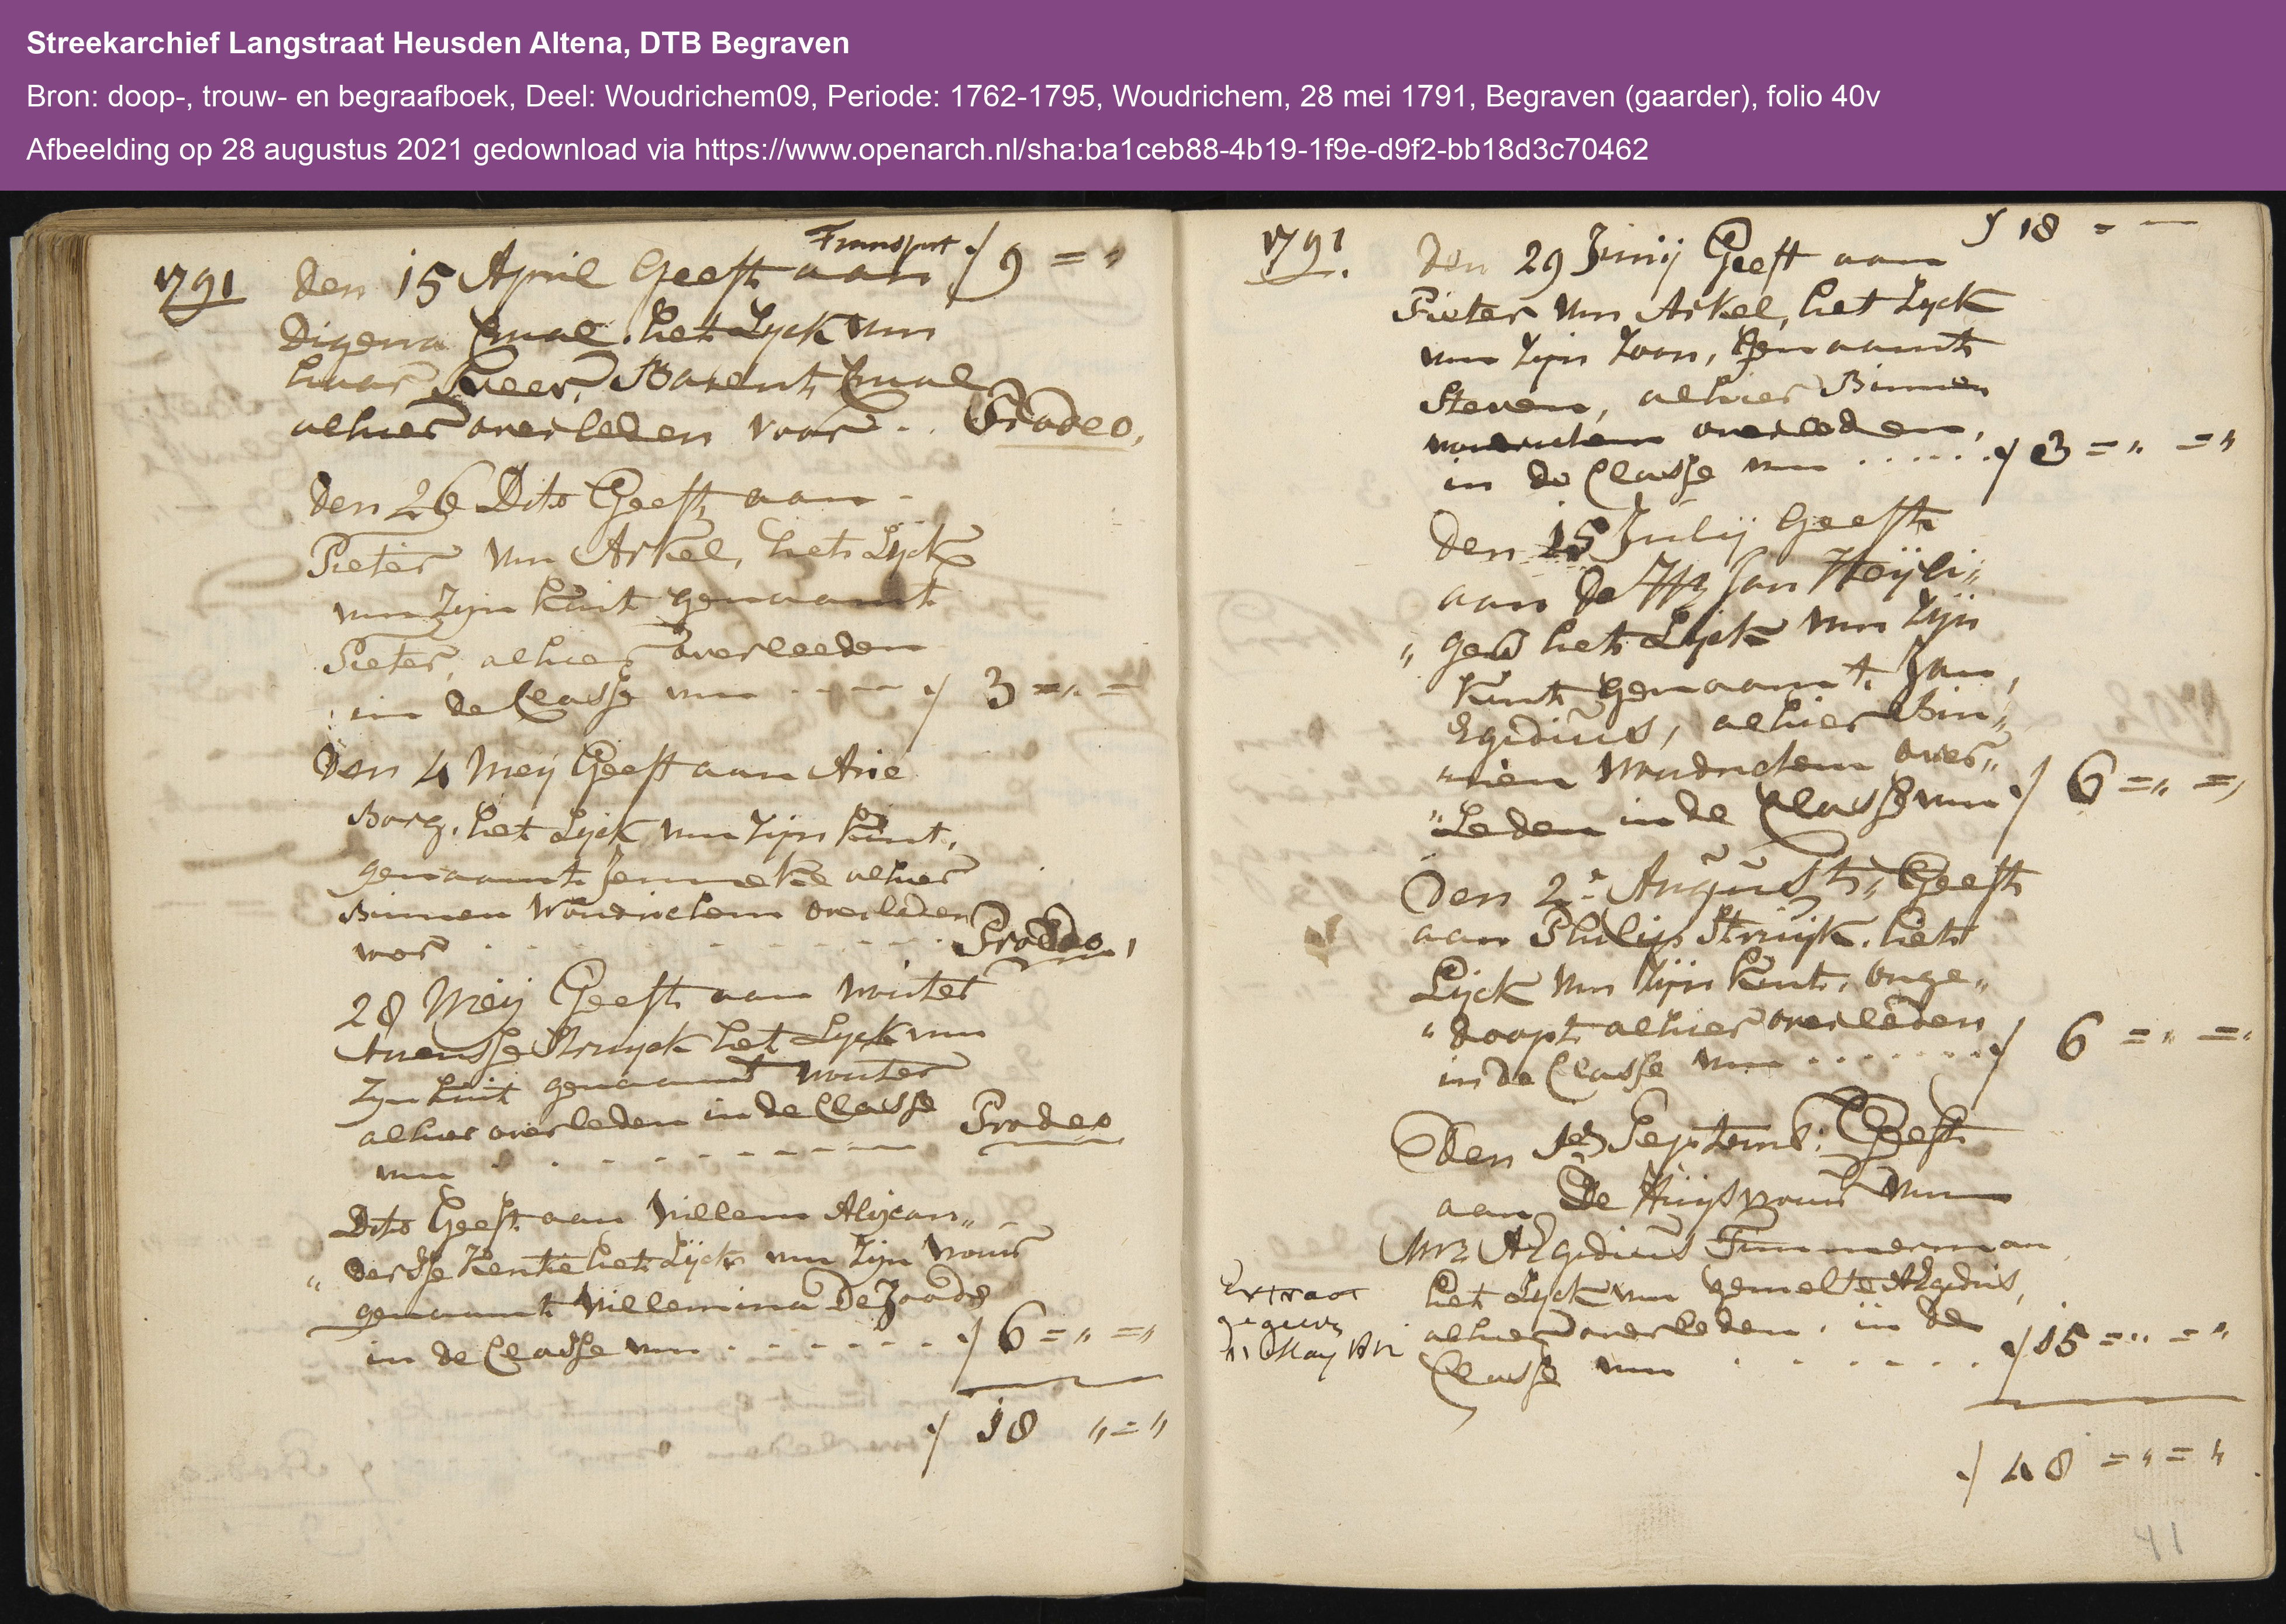 Streekarchief Langstraat Heusden Altena, DTB Begraven
Bron: doop-, trouw- en begraafboek, Deel: Woudrichem09, Periode: 1762-1795, Woudrichem, 28 mei 1791, Begraven (gaarder), folio 40v
Afbeelding op 28 augustus 2021 gedownload via https://www.openarch.nl/sha:ba1ceb88-4b19-1f9e-d9f2-bb18d3c70462
Transport ./ 9 = "
1791 den 15 April Geeft aan
Digena het Lyck van
haar Barent
alhier overleden voor .. Prodeo,
den 26 Dito Geeft aan -
Pieter van Arkel, het Lijck
van Zyn kint genaamt
Pieter, alhier overleeden
in de Classe van ---- ./ 3 = ". =
Den 4 Meij Geeft aan Arie
Borg, het Lyck van Zijn kint,
genaamt Jenneke alhier
Binnen Woudrichem overleden
voor Prodeo,
28 Meij Geeft aan Wouter
Struyck het Lyck van
Zyn kint genaamt Wouter
alhier overleden in de Classe
van Prodeo
Dito Geeft aan Willem Alixan"
" derse het Lijck van Zijn Vrouw
genaamt Willemina De
in de Classe van ...... ./ 6 = " = "
./ 18 " = "
ƒ 18 = —
1791. Den 29 Junij Geeft aan
Pieter van Arkel, het Lyck
van Zijn Zoon, Genaamt
Steven, alhier Binnen
woudrichem overleeden,
in de Classe van ...... ./ 3 = " = "
Den 15 Julij Geeft
aan de Jan Heijli"
" gers het Lijck van Zijn
kint genaamt Jan,
Egidius, alhier Bin"
"nen Woudrichem over"
"Leden in de Classe van ./ 6 = " = "
Den 2e August, Geeft
aan Philip Struijk, het
Lijck van Zijn kint, onge"
" doopt alhier overleden
in de Classe van ....... ./ 6 = " = "
Den Septemb: Geeft
aan De Huijsvrouw van
Mr AEgidius Timmerman
het Lyck van gemelte AEgidius,
alhier overleden, in de
Classe van ./ 15 = " = "
Extract
gegeven
11 May
./ 48 = " = "
41